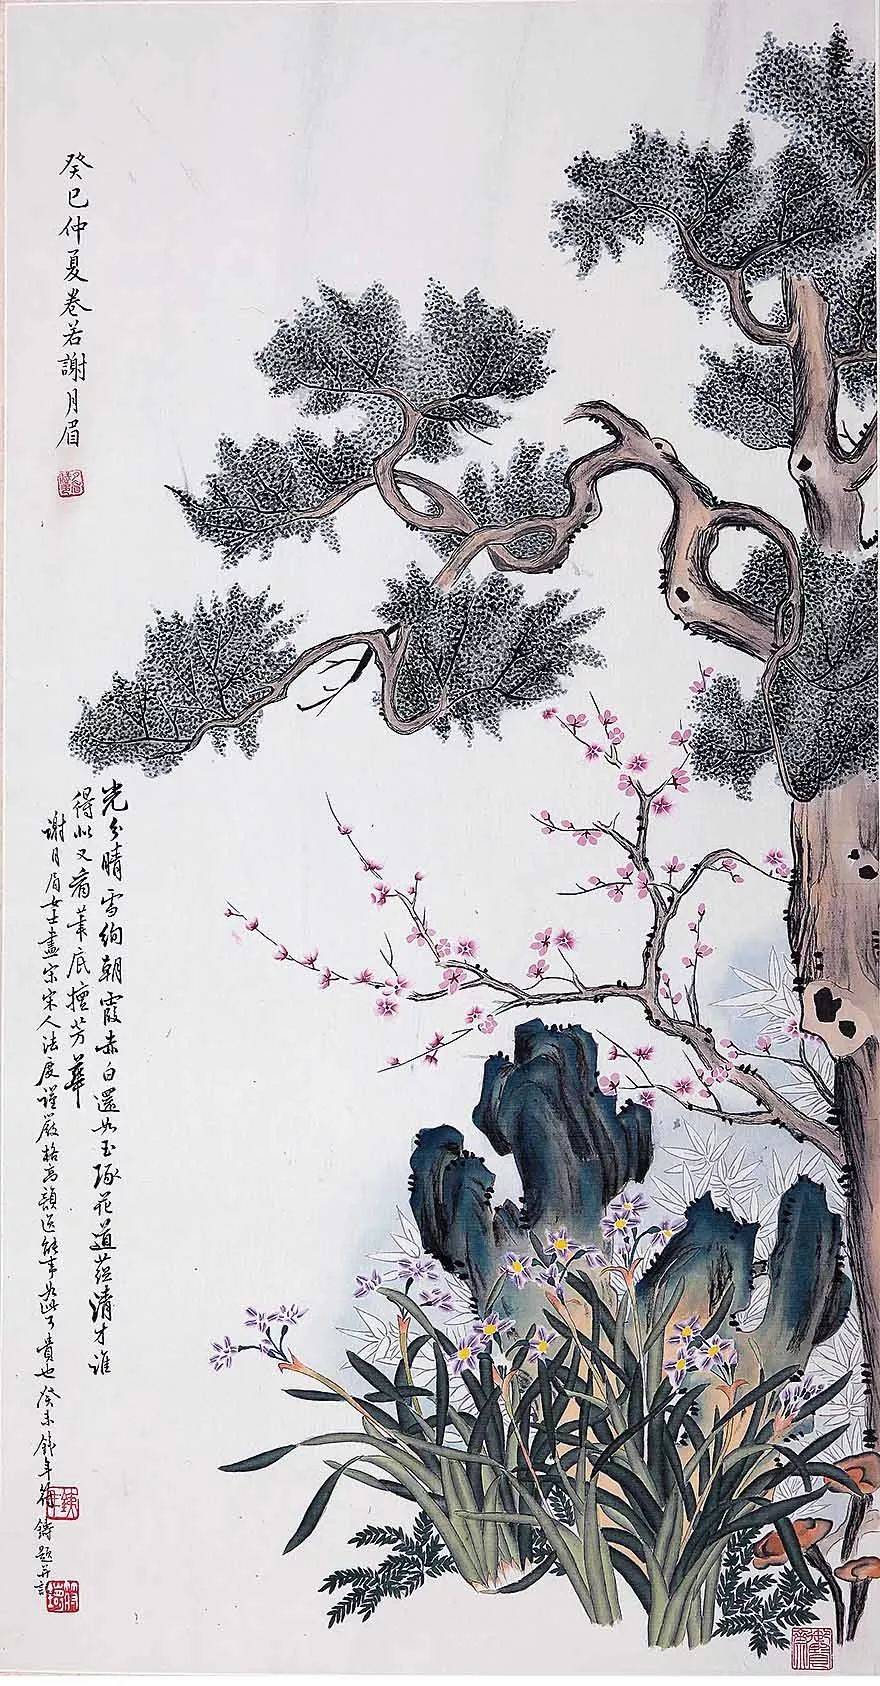 癸巳仲夏卷若謝月眉
光分晴雪絢朝霞赤白還如玉琢花道蘊清才誰
得似又看華底擅芳華
謝月眉女士畫宗宋人法度謹嚴格高韻逸能事如此可貴也癸未鐵年符鑄題并記